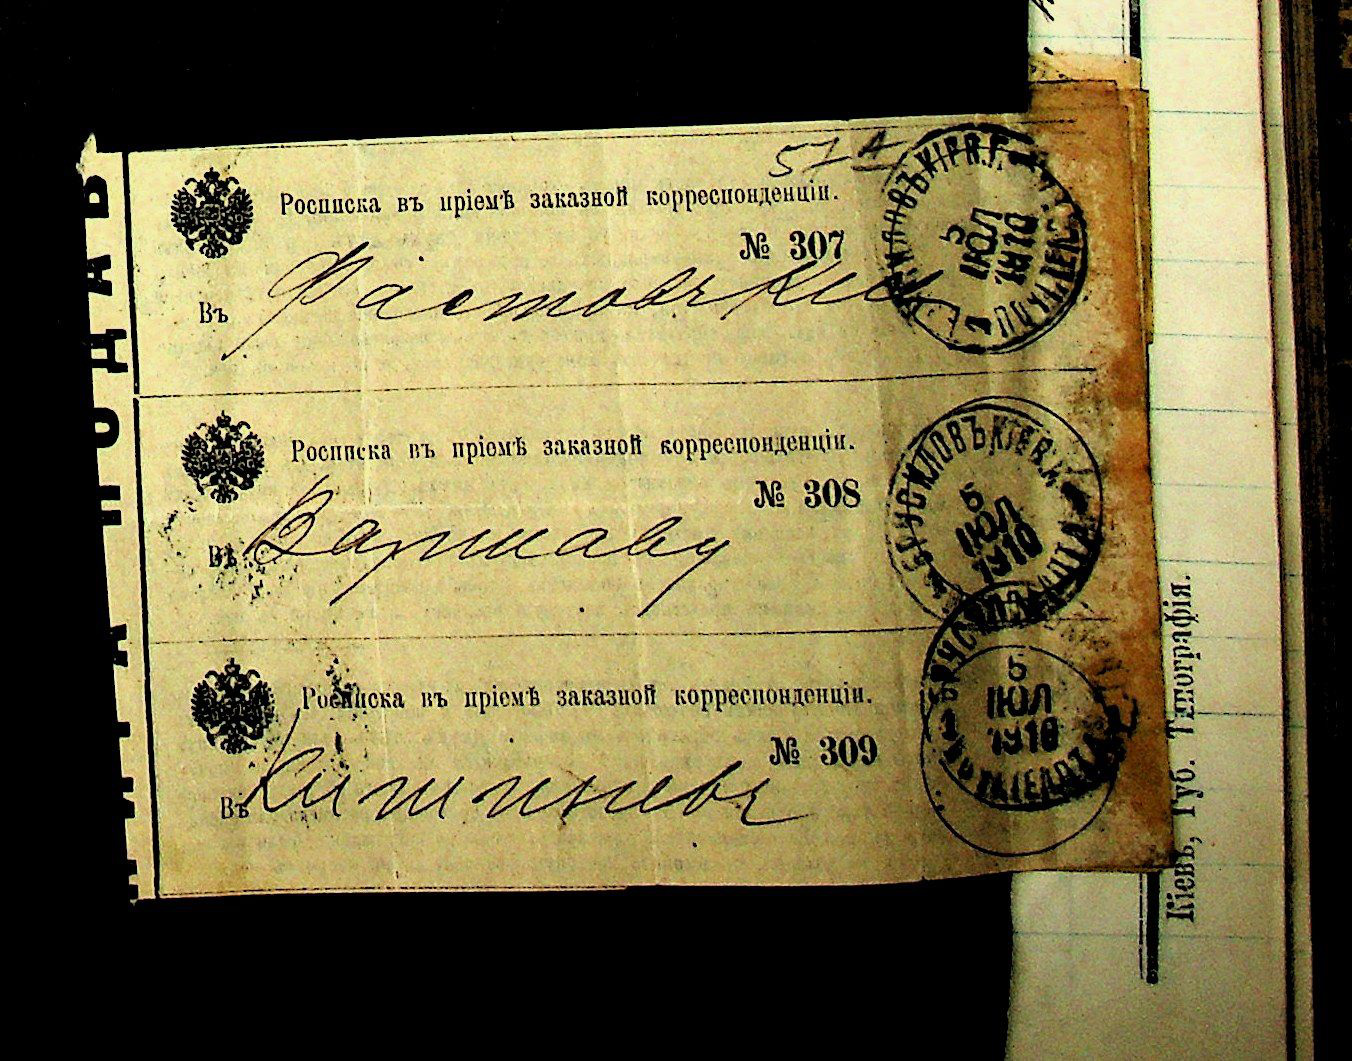 57
Росписка въ пріемѣ заказной корреспонденціи.
№ 307
Въ Фастовъ Кіев
5
ІЮЛ
1910
Росписка въ пріемѣ заказной корреспонденціи.
№ 308
Въ Варшаву
БРУСИЛОВЪ КІЕВ.
5
ІЮЛ
1910
Росписка въ пріемѣ заказной корреспонденціи.
№ 309
Въ Кишиневъ
5
ІЮЛ
1910
Кіевъ, Губ. Типографія.